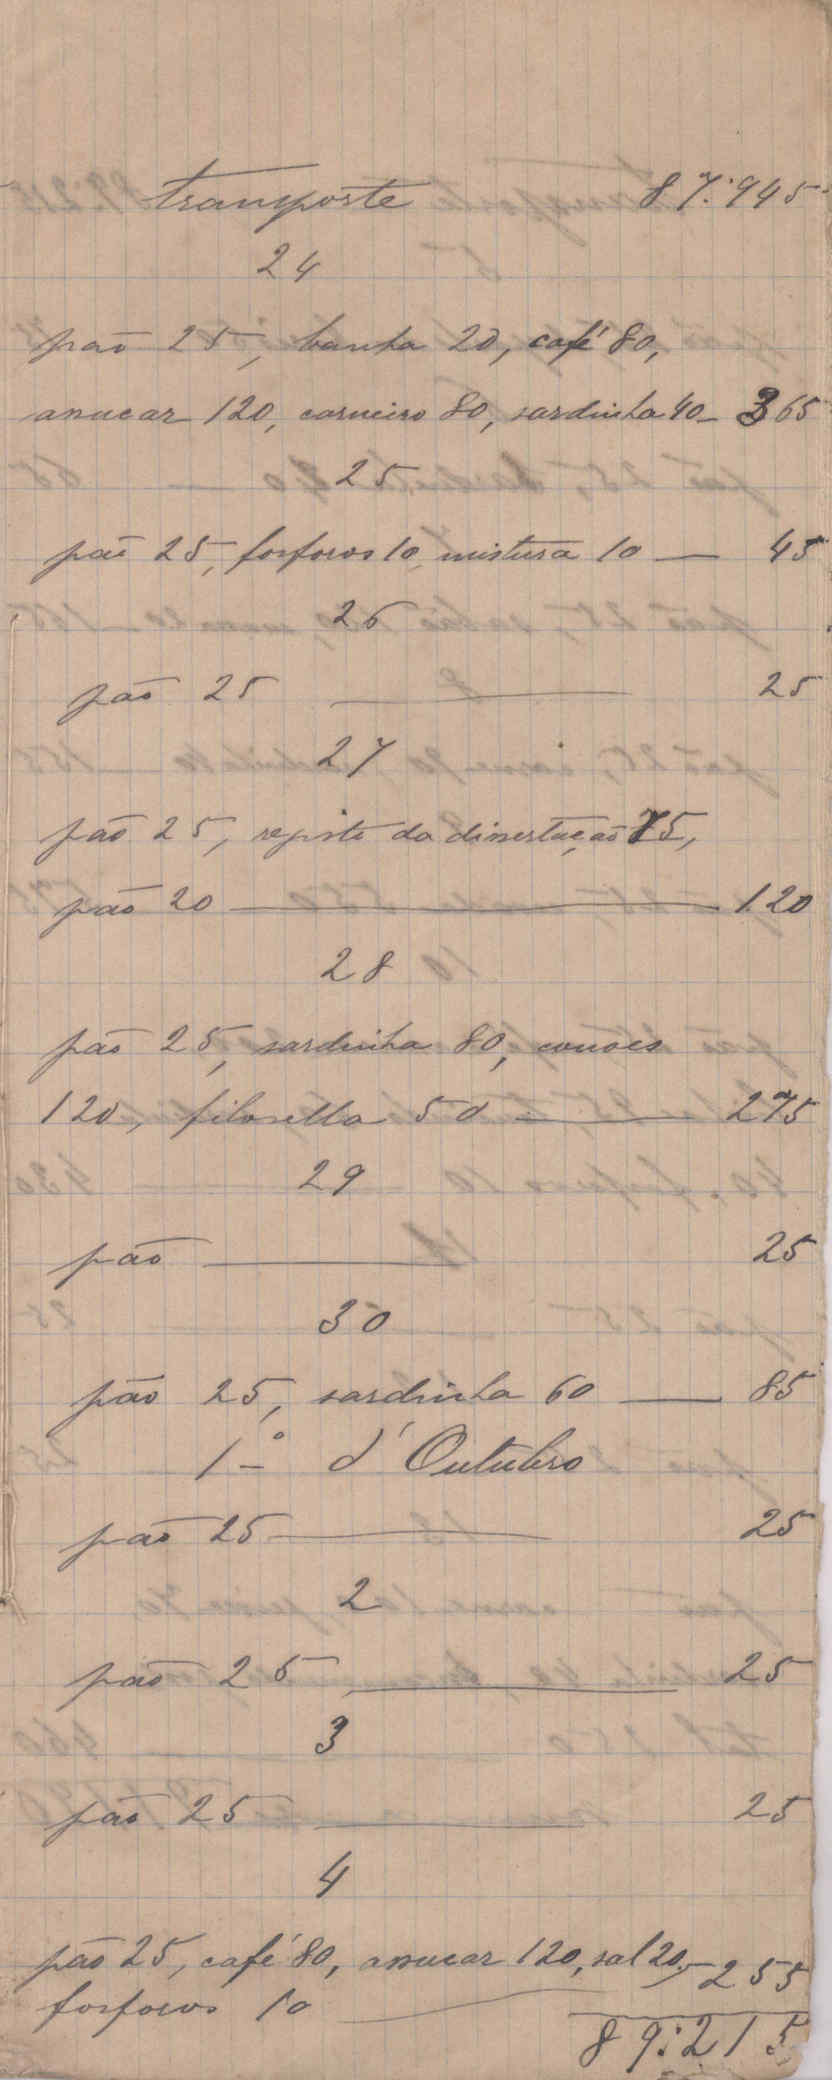 Transporte 87:945
24
pão 25, banha 20, café 80,
assucar 120, carneiro 80, sardinha 40 - 365
25
pão 25, fosforos 10, mistura 10 — 45
26
pão 25 — 25
27
pão 25, registo da dissertação 75,
pão 20 — 120
28
pão 25, sardinha 80, couves
120, filosella 50 — 275
29
pão — 25
30
pão 25, sardinha 60 — 85
1º d'Outubro
pão 25 — 25
2
pão 25 — 25
3
pão 25 — 25
4
pão 25, café 80, assucar 120, sal 20, - 255
fosforos 10 —
89:215